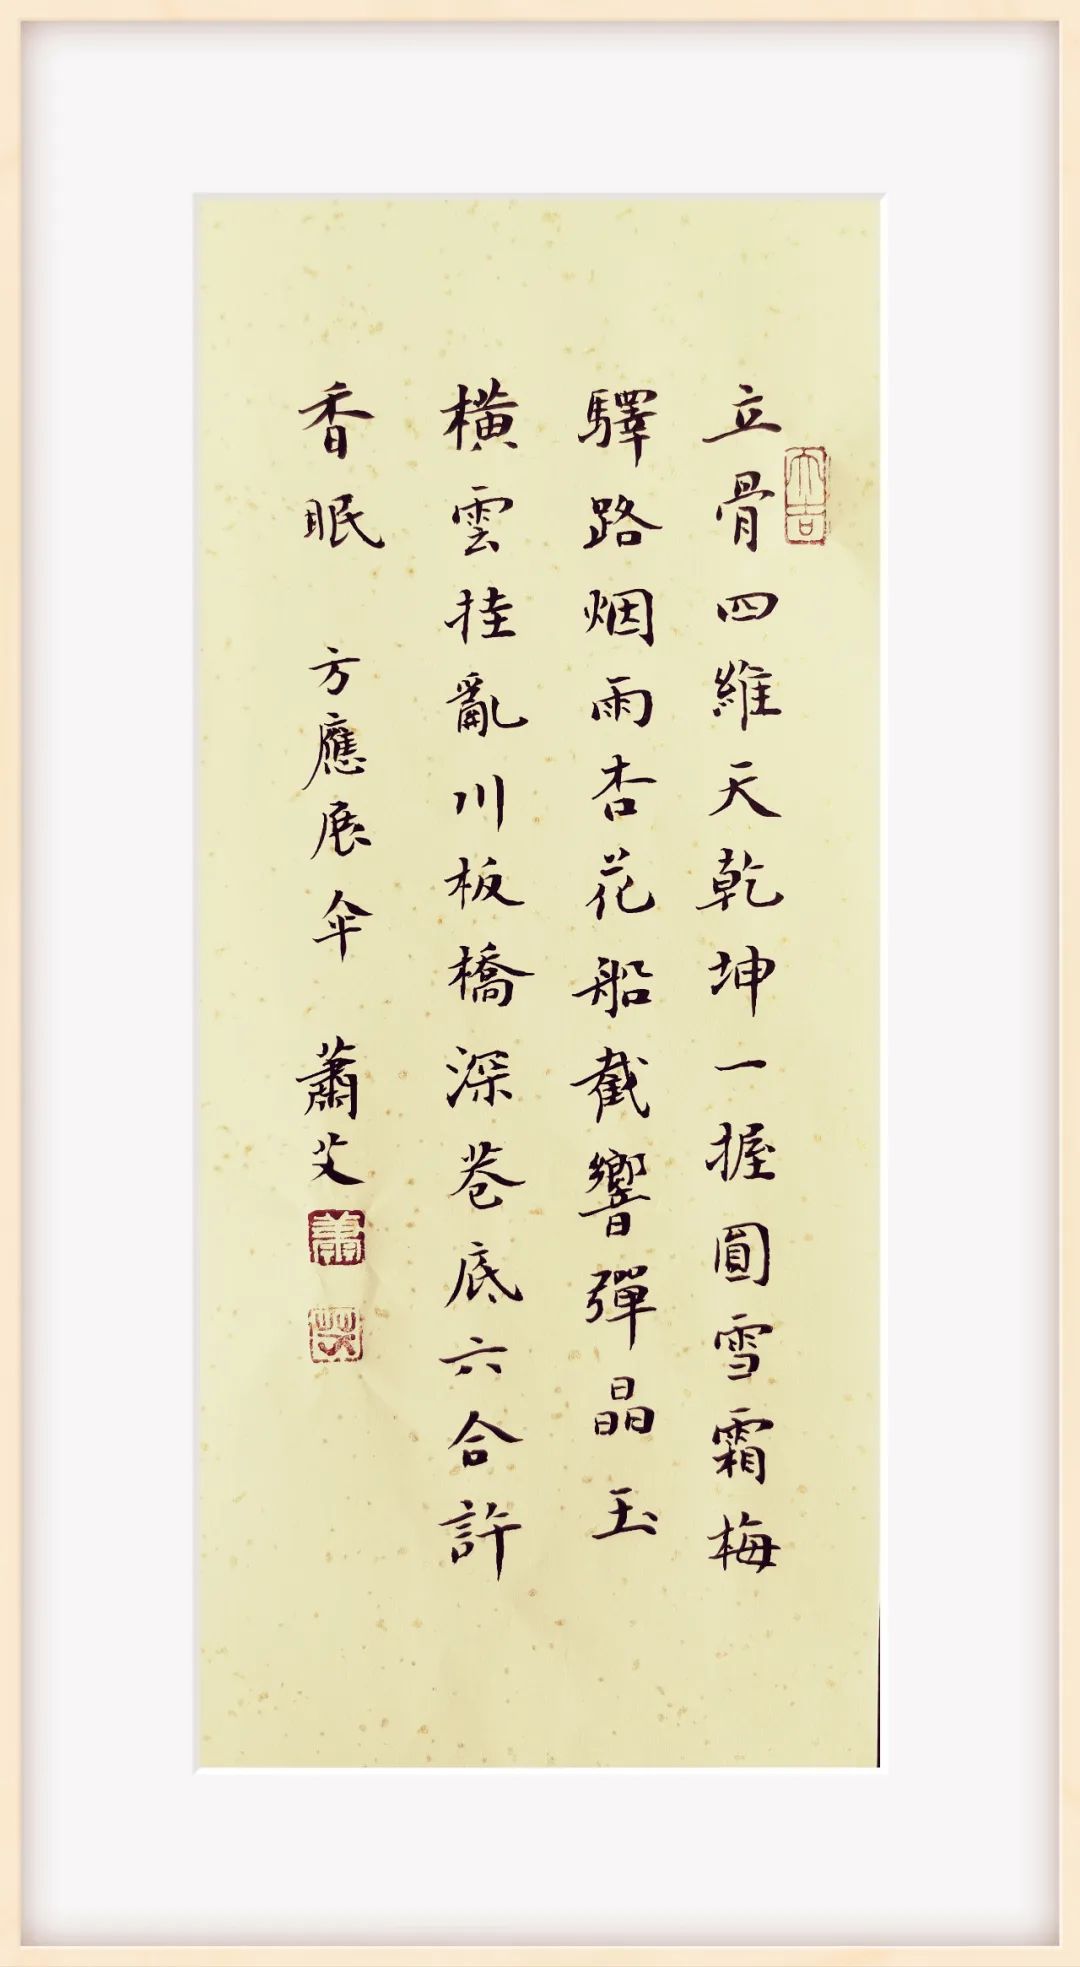 立骨四維天乾坤一握圓雪霜梅
驛路烟雨杏花船截響彈晶玉
橫雲挂亂川板橋深巷底六合許
香眠 方應展傘 蕭艾
大吉
蕭
艾